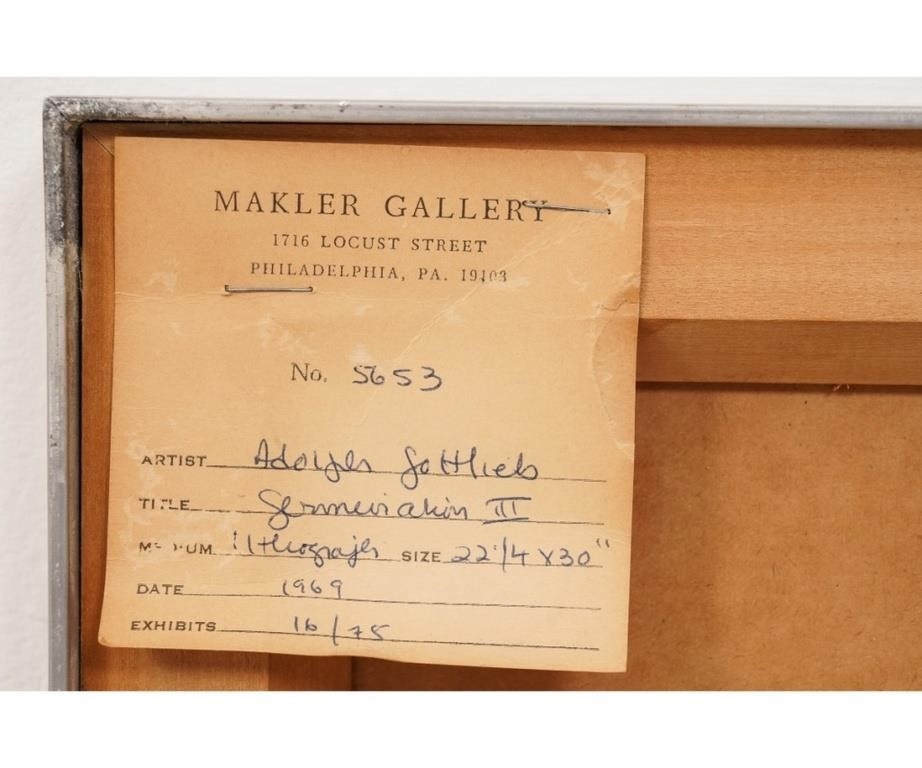 MAKLER GALLERY
1716 LOCUST STREET
PHILADELPHIA, PA. 19103
No. 5653
ARTIST Adolph Gottlieb
TITLE Germination III
MEDIUM lithograph SIZE 22 1/4 x 30"
DATE 1969
EXHIBITS 16/75